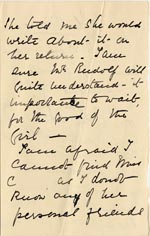 She told me she would
write about it on
her return. I am
sure Mr Rudolf will
quite understand it
importance to wait,
for the good of the
girl —
I am afraid I
cannot find Miss
C as I do not
know any of her
personal friends